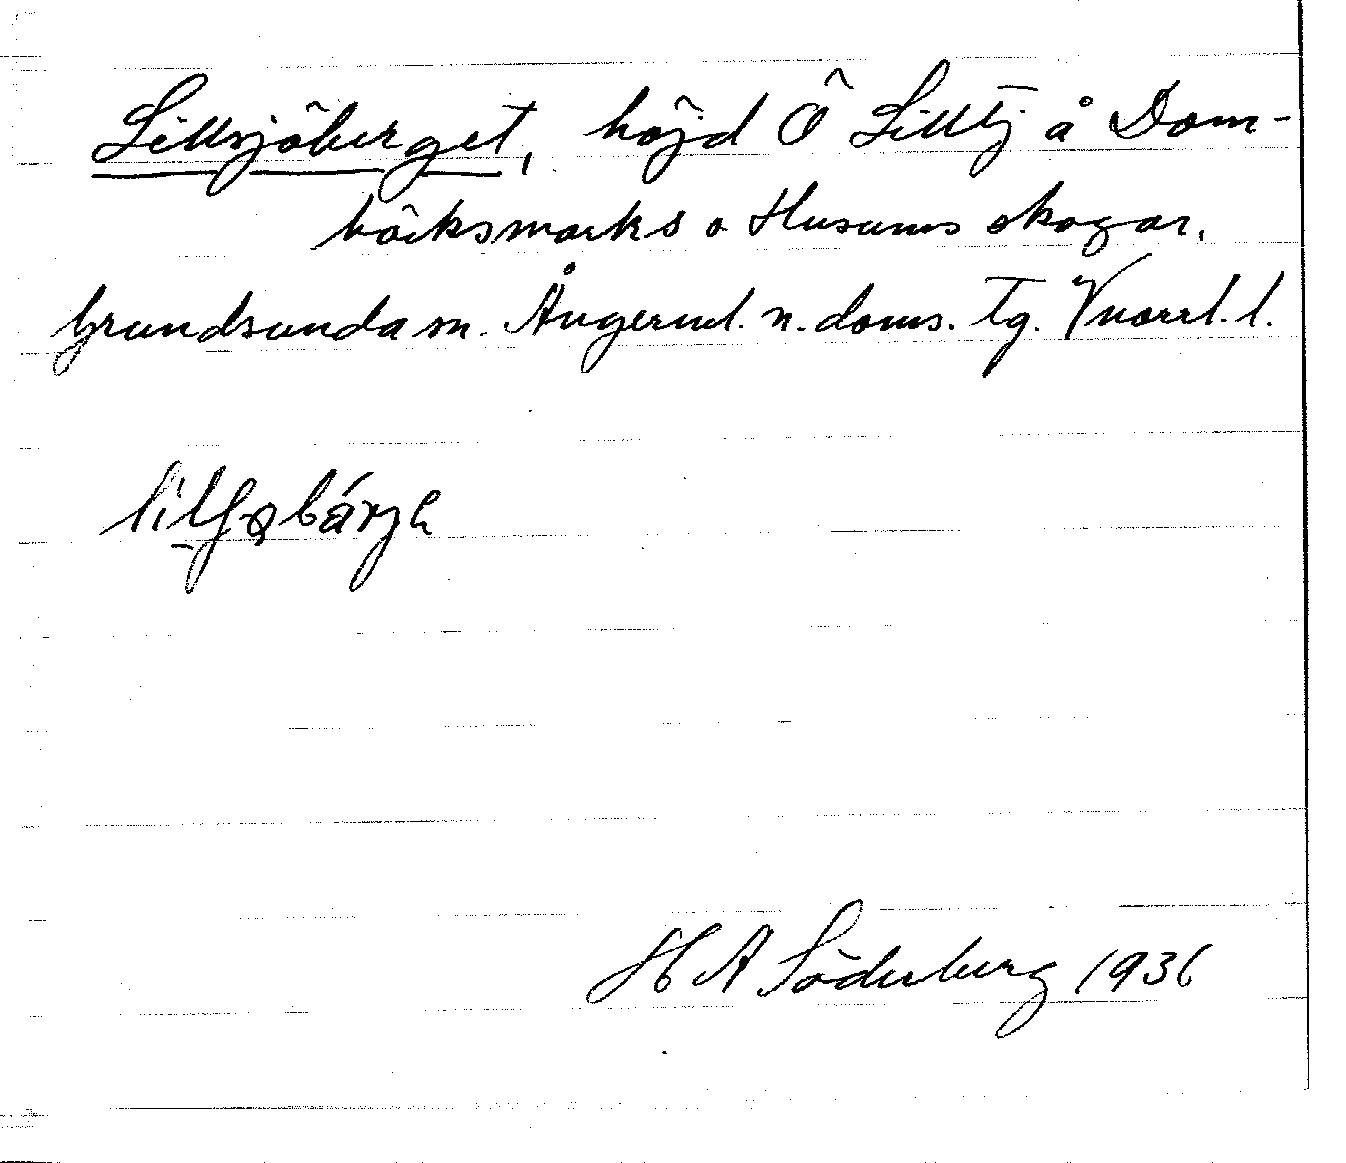 Lillsjöberget, höjd Ö Lilltj å Dom-
bäcksmarks o Husums skogar.
Grundsunda sn. Ångerml. n. doms. Tg. Vnorrl. l.
H A Söderberg 1936